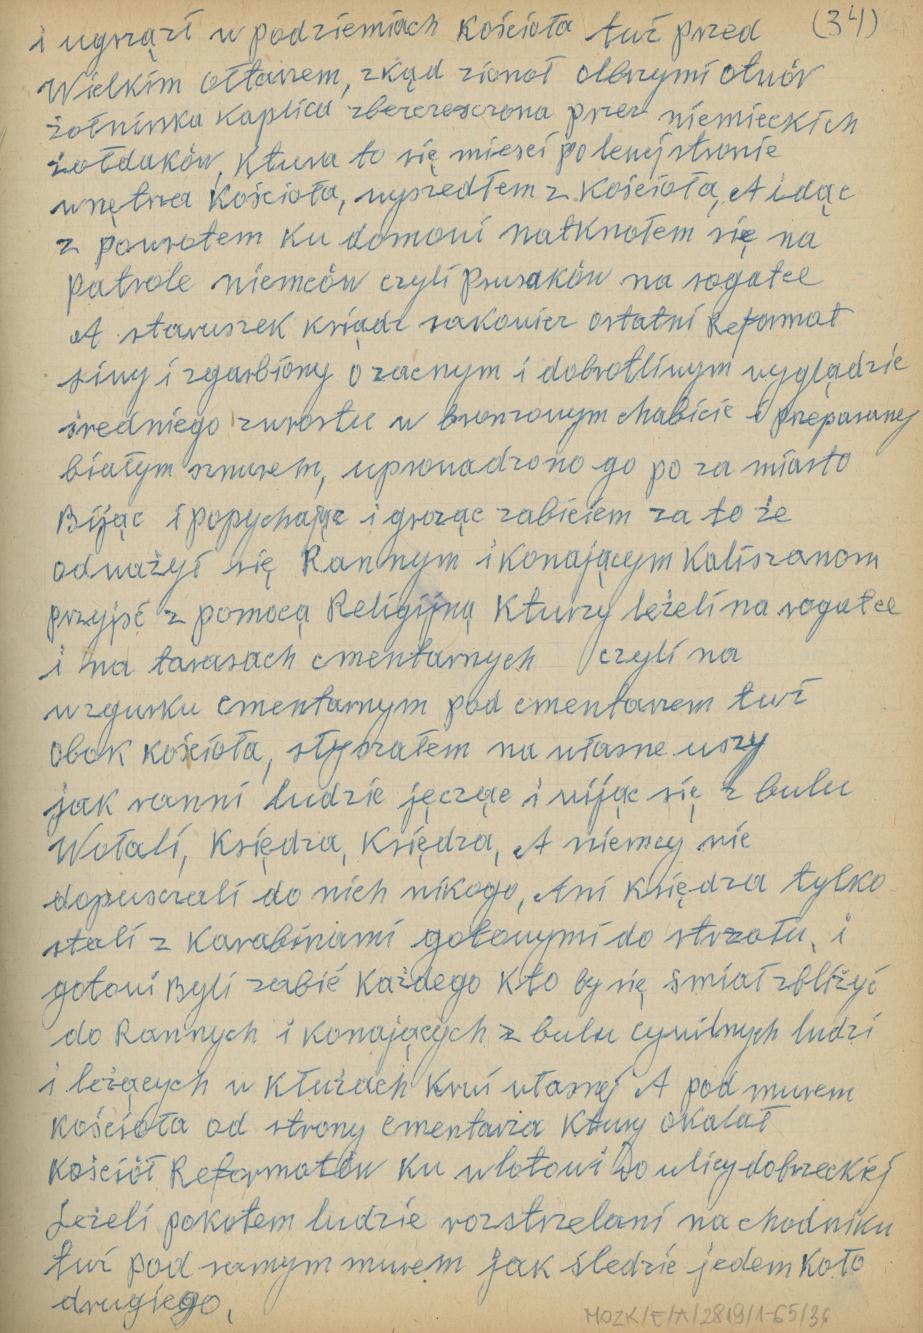 (34)
i ugrząźł w podziemiach Kościoła tuż przed
Wielkim ołtarzem, zkąd zionoł olbrzymi otwór
żołnirska kaplica zbezczeszczona przez niemieckich
żołdaków, Ktura to się mieści po lewej stronie
wnętrza Kościoła, wyszedłem z Kościoła, A idąc
z powrotem ku domowi natknołem się na
patrole niemców czyli Prusaków na rogatce
A staruszek ksiądz zakonier ostatni Reformat
siwy i zgarbiony o zacnym i dobrotliwym wyglądzie
średniego zwrostu w bronzowym chabicie i przepasanej
białym sznurem, uprowadzono go po za miasto
Bijąc i popychając i grożąc zabiciem za to że
odważył się Rannym i konającym Kaliszanom
przyjść z pomocą Religijną Kturzy leżeli na rogatce
i na tarasach cmentarnych czyli na
wzgurku cmentarnym pod cmentarzem tuż
obok kościoła, słyszałem na własne uszy
jak ranni ludzie jęcząc i wijąc się z bulu
Wołali, Księdza, Księdza, A niemcy nie
dopuszczali do nich nikogo, Ani księdza tylko
stali z Karabinami gotowymi do strzału, i
gotowi Byli zabić Każdego Kto by się śmiał zbliżyć
do Rannych i konających z bulu cywilnych ludzi
i leżących w Kłużach krwi własnej A pod murem
kościoła od strony cmentarza Ktury okalał
Kościół Reformatów ku wlotowi do ulicy dobrzeckiej
Leżeli pokotem ludzie rozstrzelani na chodniku
tuż pod samym murem jak śledzie jedem koło
drugiego,
MOZK/E/A/2819/1-65/36